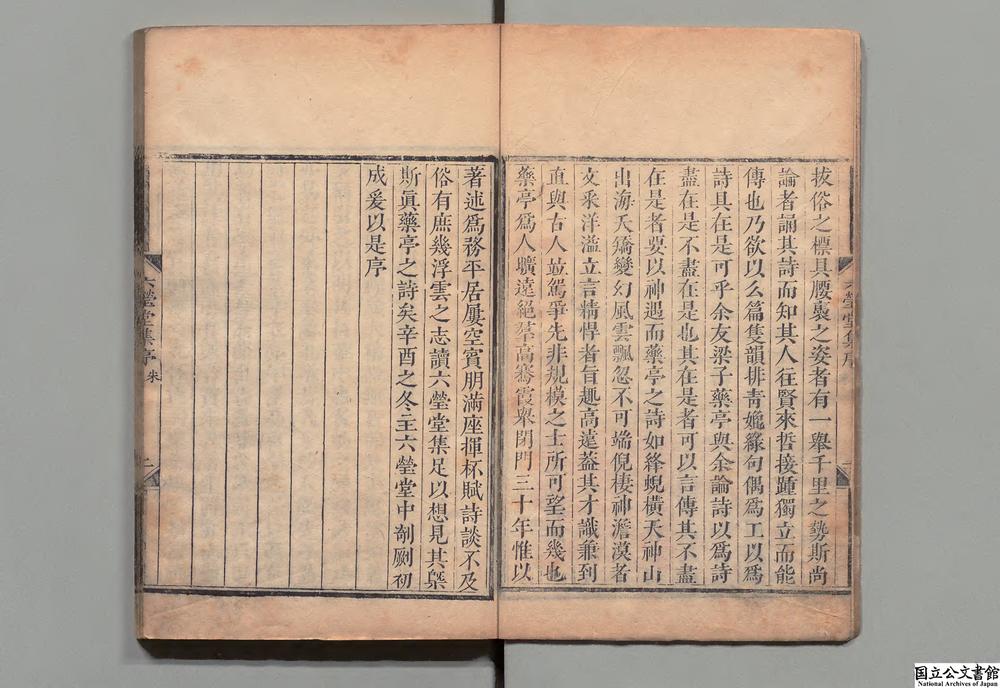 拔俗之標具腰褭之姿者有一舉千里之勢斯尚
論者誦其詩而知其人往賢來哲接踵獨立而能
傳也乃欲以么篇隻韻排靑媲綠句偶爲工以爲
詩具在是可乎余友梁子藥亭與余論詩以爲詩
盡在是不盡在是也其在是者可以言傳其不盡
在是者要以神遇而藥亭之詩如絳蜺橫天神山
出海夭矯變幻風雲飄忽不可端倪棲神澹漠者
文釆洋溢立言精悍者旨趣高遠葢其才識兼到
直與古人並駕爭先非規模之士所可望而幾也
藥亭爲人曠遠絕
高騫霞舉閉門三十年惟以
六瑩堂集序
著述爲務平居屢空賓朋滿座揮杯賦詩談不及
俗有庶幾浮雲之志讀六瑩堂集足以想見其槩
斯眞藥亭之詩矣辛酉之冬主六瑩堂中剞劂初
成爰以是序
六瑩堂集序
二
国立公文書館
National Archives of Japan